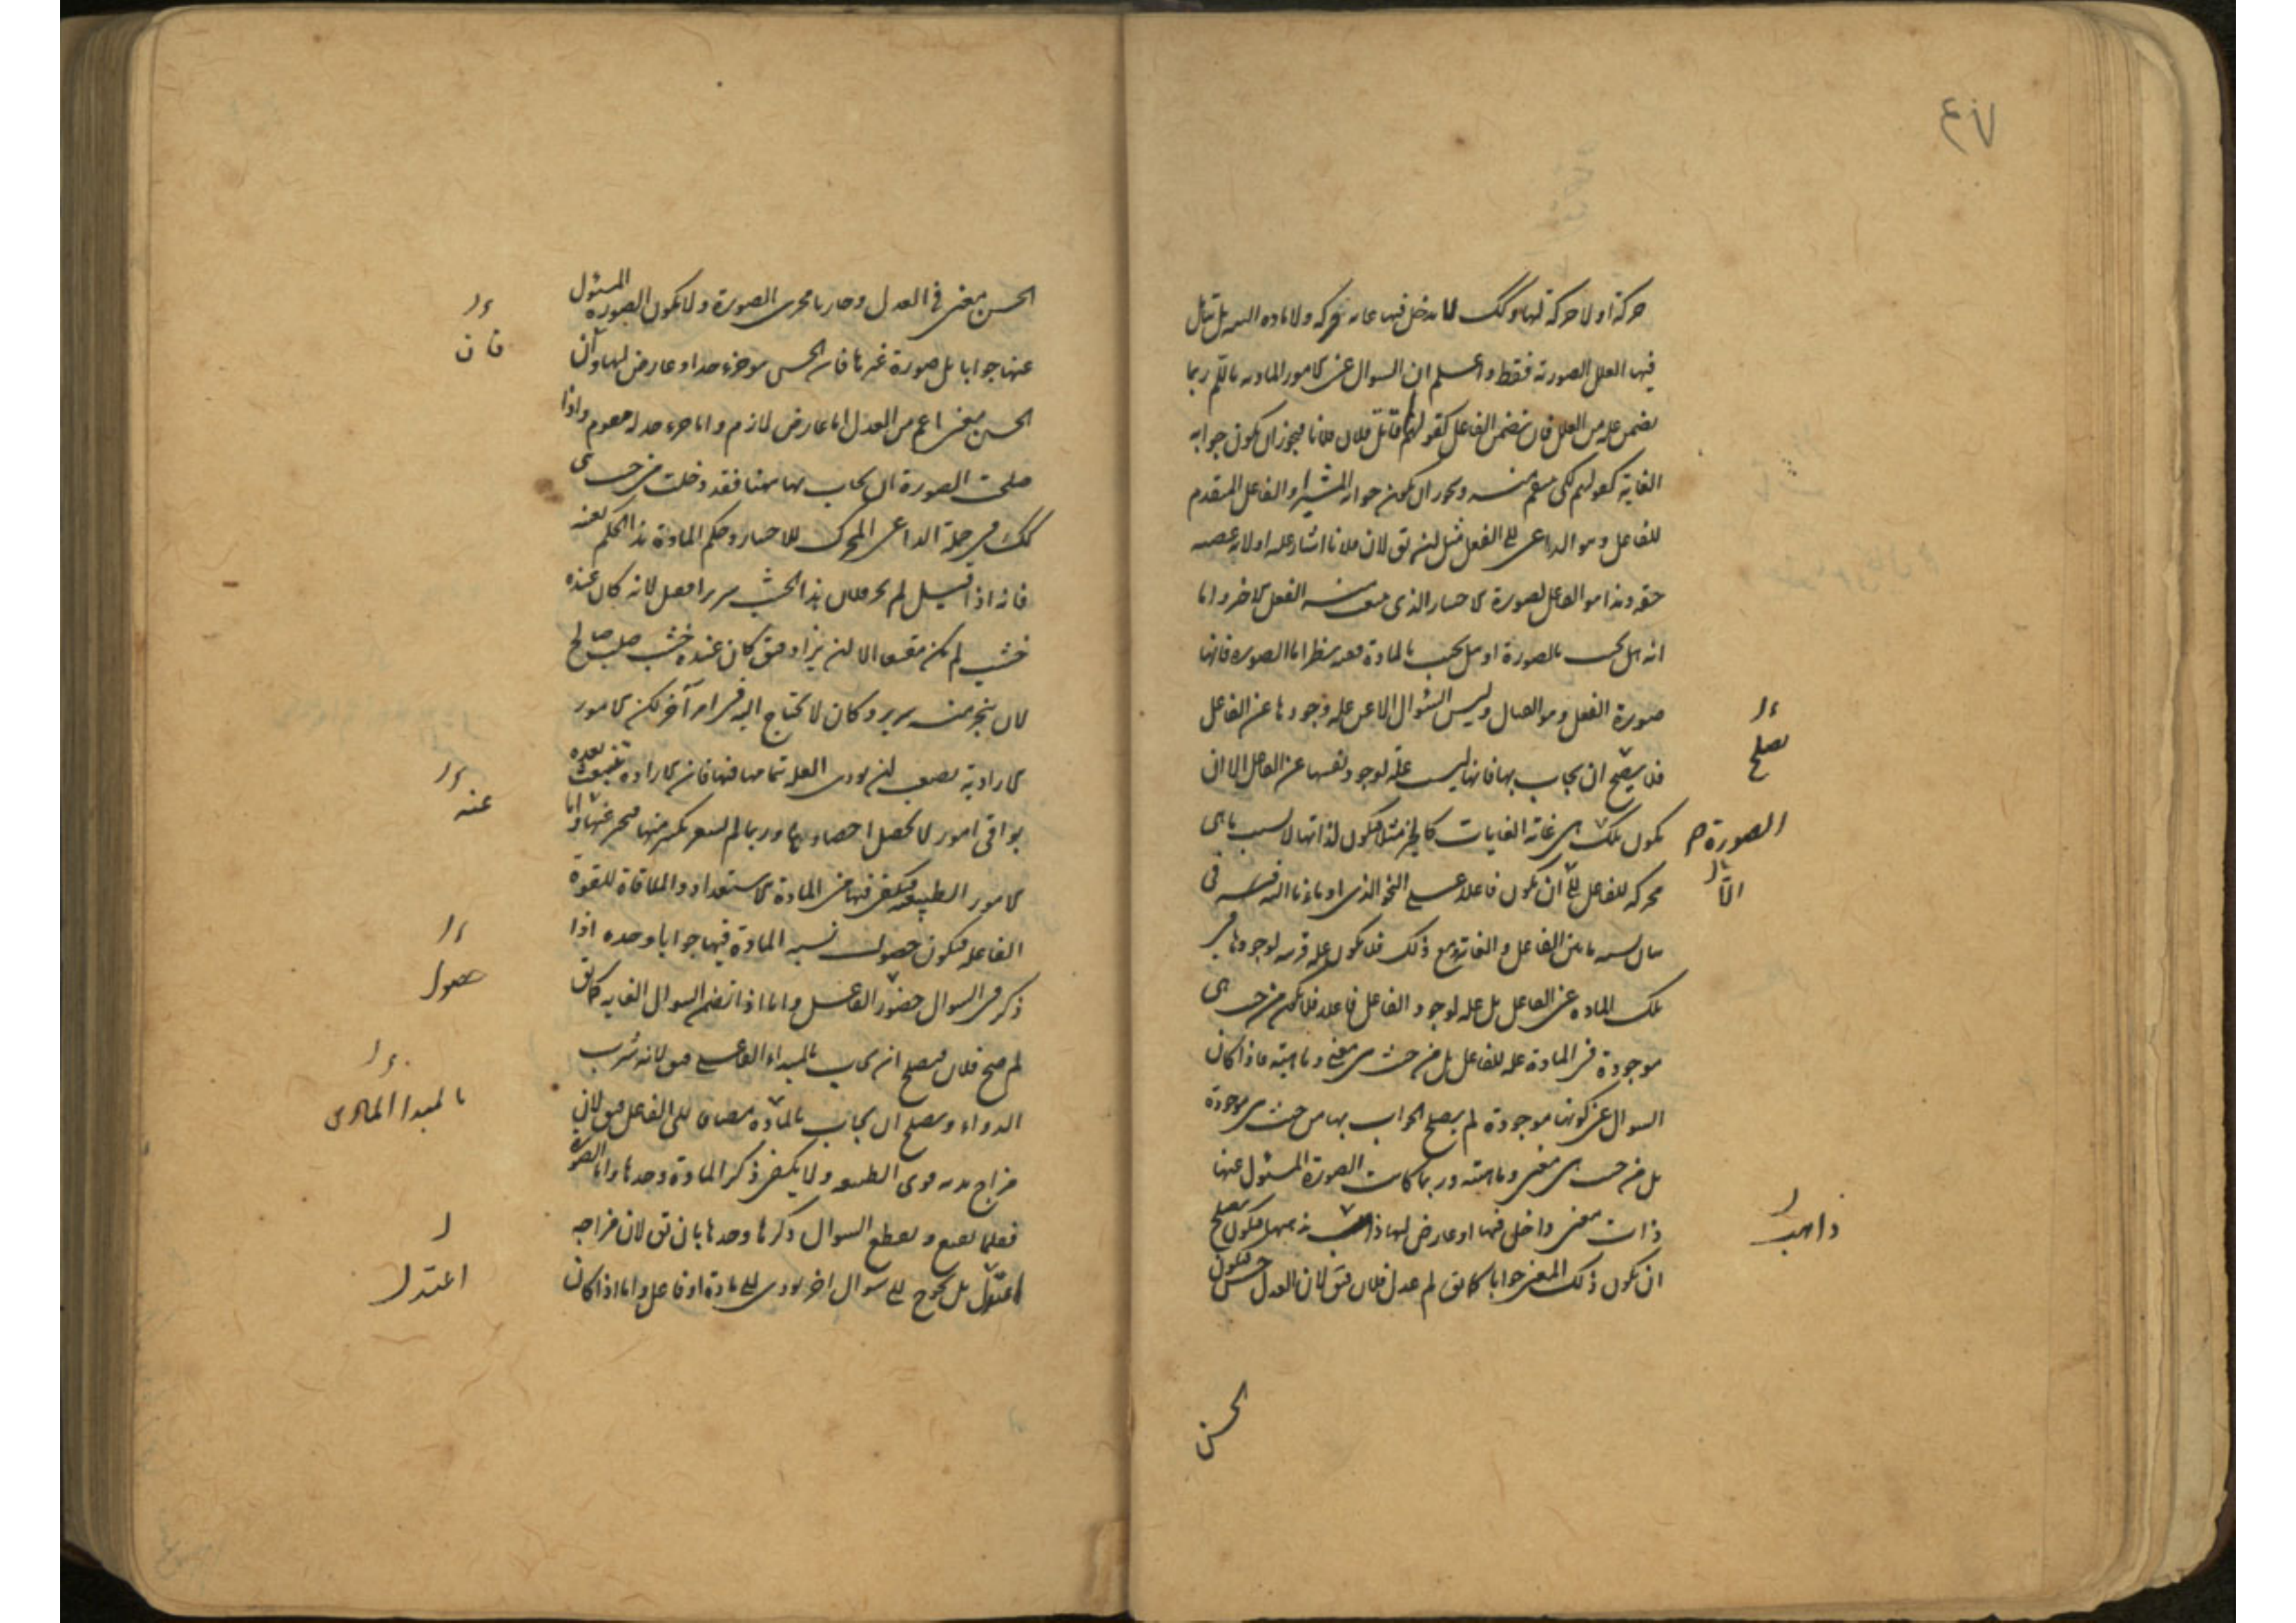 حركة او لا حركة لها وكك لا يدخل فيها غاية حركة ولا مادة البتة بل تتأمل
فيها العلل الصورية فقط واعلم ان السوال عن الامور المادية بالم ربما
يضمن علة من العلل فان تضمن الفاعل كقولهم لم قاتل فلان فلانا فيجوز ان يكون جوابه
الغاية كقولهم لكى ينتقم منه ويجوز ان يكون جوابه المشير او الفاعل المتقدم
للفاعل وهو الداعى الى الفعل مثل ان يق لان فلانا اشار عليه او لانه غصبه
حقه وهذا هو الفاعل لصورة الاختيار الذى ينبعث منه الفعل الاخر واما
انه هل يجب بالصورة او هل يجب بالمادة ففيه نظر اما الصورة فانها
صورة الفعل وهو القتال وليس السؤال الا عن علة وجودها عن الفاعل
فلا يصح ان يجاب بها فانها ليست علة لوجود نفسها عن الفاعل الا ان
يكون تلك هى غاية الغايات كالخير مثلا فيكون لذاتها لا لسبب ما هى
محركة للفاعل الى ان يكون فاعلا على النحو الذى اومأنا اليه قريبا فى
بيان نسبة ما بين الفاعل والغاية ومع ذلك فلا يكون علة قريبة لوجودها فى
تلك المادة عن الفاعل بل علة لوجود الفاعل فاعلا فلا يكون من حيث هى
موجودة فى المادة علة للفاعل بل من حيث هى معنى وماهية فاذا كان
السوال عن كونها موجودة لم يصلح الجواب بها من حيث هى موجودة
بل من حيث هى معنى وماهية وربما كانت الصورة المسئول عنها
ذات معنى داخل فيها او عارض لها فيكون يصلح
ان يكون ذلك المعنى جوابا كما يق لم عدل فلان فيق لان العدل حسن فيكون
يصلح
الصورة م
الا
الحسن
الحسن معنى فى العدل وجاريا مجرى الصورة ولا يكون الصورة المسئول
عنها جوابا بل صورة غيرها فان الحسن هو جزء حد او عارض لها وان
الحسن معنى اعم من العدل اما عارض لازم واما جزء حد له مقوم واذا
صلحت الصورة ان يجاب بها ههنا فقد دخلت من حيث هى
كك فى جملة الداعى المحرك للاختيار وحكم المادة هذا الحكم بعينه
فانه اذا قيل لم نجر فلان هذا الخشب سريرا فقيل لانه كان عنده
خشب لم يكن مقنعا الا ان يزاد فيق كان عنده خشب صلب صالح
لان ينجر منه سرير وكان لا يحتاج اليه فى امر آخر لكن الامور
الارادية يصعب ان يودى العلة بتمامها فيها فان الارادة تنبعث بعده
بوافى امور لا يحصل احصاؤها وربما لم يشعر بكثير منها فيخبر عنها واما
الامور الطبيعية فيكفى فيها من المادة الاستعداد والملاقاة للقوة
الفاعلة فيكون حصول نسبة المادة فيها جوابا وحده اذا
ذكر فى السوال حضور الفاعل واما اذا تضمن السوال الغاية كما يق
لم صح فلان فيصلح ان يجاب بالمبداء الفاعلى فيق لانه شرب
الدواء ويصلح ان يجاب بالمادة مضافا الى الفاعل فيق لان
مزاج بدنه قوى الطبيعة ولا يكفى ذكر المادة وحدها واما الصورة
فقلما يقنع ويقطع السوال ذكرها وحدها بان يق لان مزاجه
اعتدل بل يحوج الى سوال اخر يودى الى مادة او فاعل واما اذا كان
فان
عنه
حصول
بالمبدا المادى
اعتدل